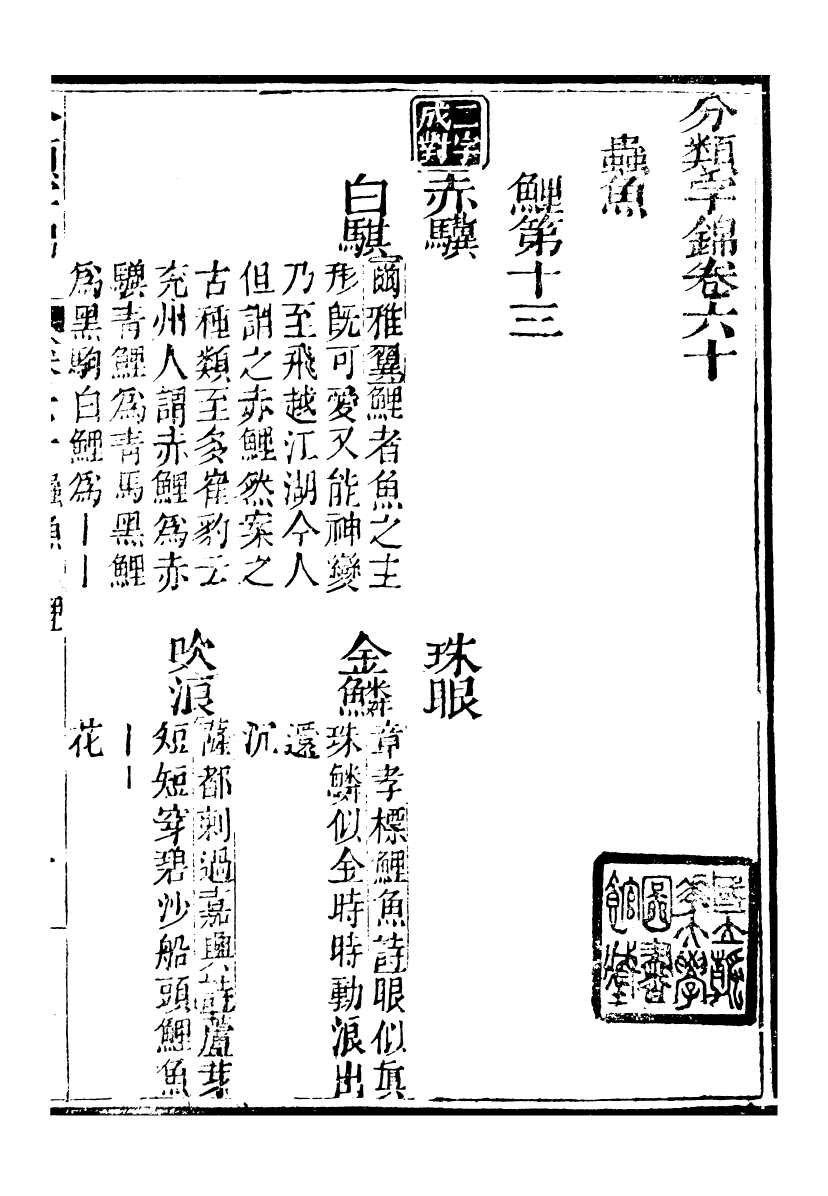 分類字錦卷六十
蟲魚
鯉第十三
二字
成對
赤驥
白騏
爾雅翼鯉者魚之主
形既可愛又能神變
乃至飛越江湖今人
但謂之赤鯉然案之
古種類至多崔豹云
兖州人謂赤鯉爲赤
驥青鯉爲青馬黑鯉
爲黑駒白鯉爲丨丨
珠眼
金鱗
章孝標鯉魚詩眼似真
珠鱗似金時時動浪出
還
沉
吹浪
薩都剌過嘉興詩蘆芽
短短穿碧沙船頭鯉魚
丨丨
花
國立
大學
圖書
館藏
卷六十 蟲魚 鯉